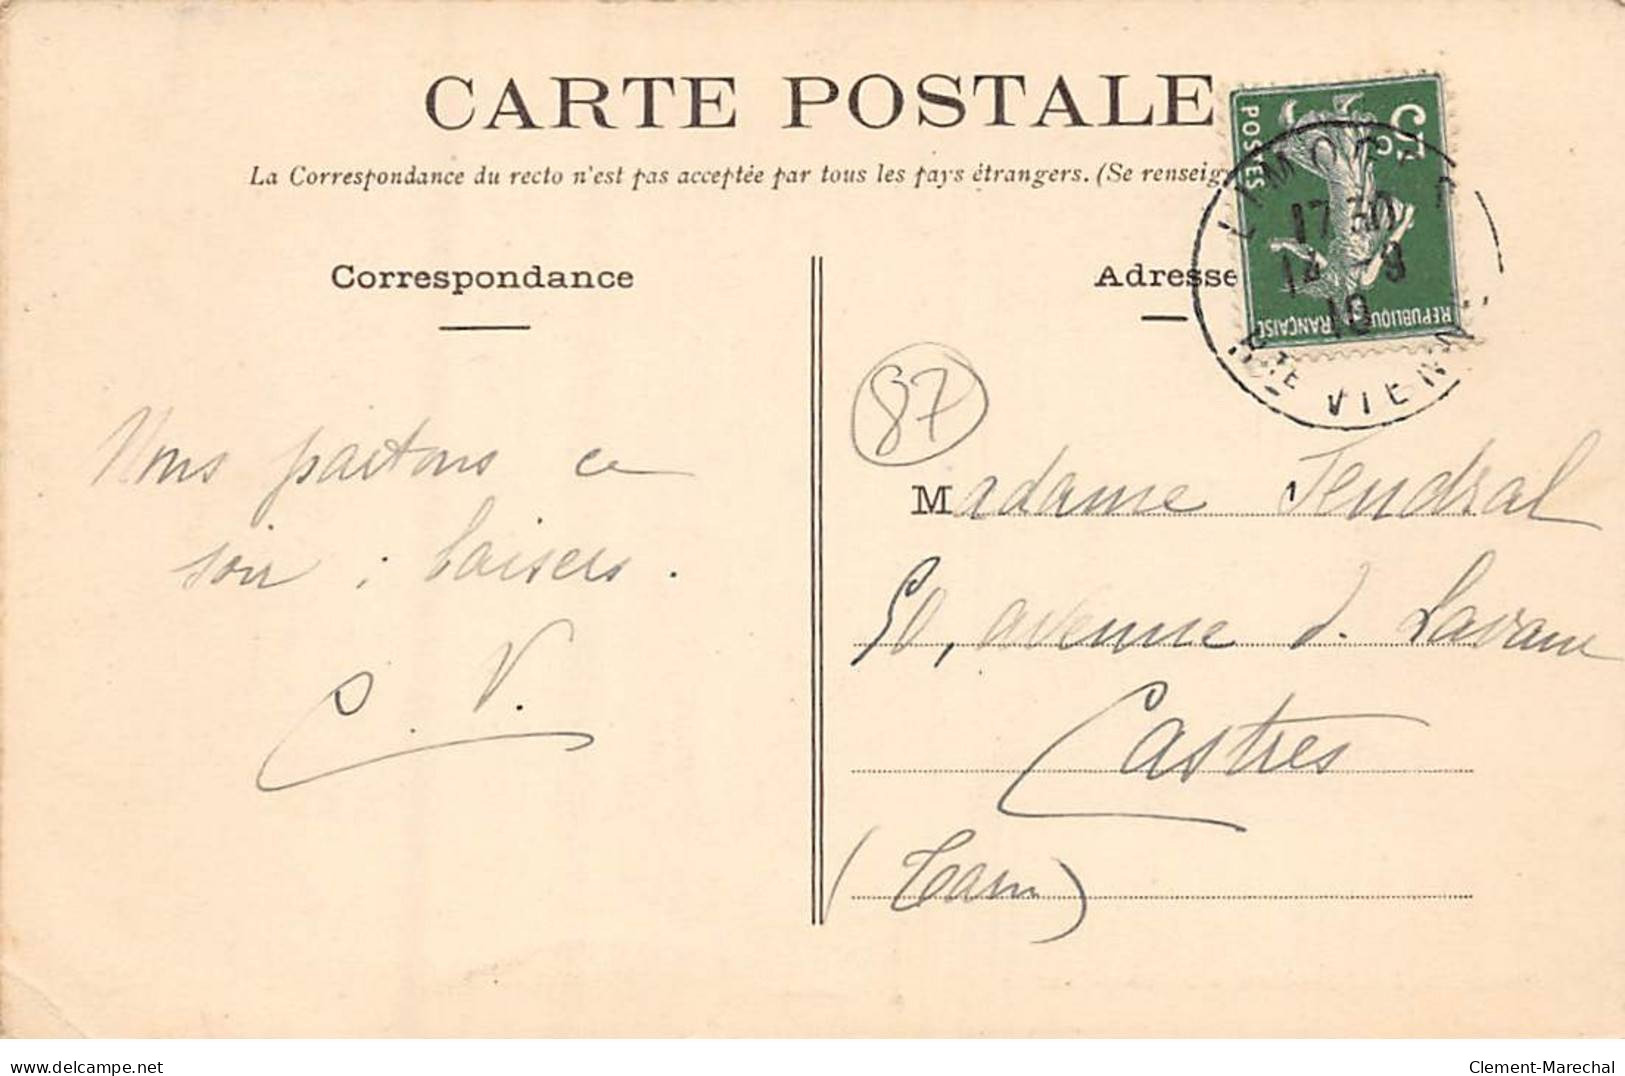 CARTE POSTALE
La Correspondance du recto n'est pas acceptée par tous les pays étrangers. (Se renseig
Correspondance
Adresse
5
c
POSTES
REPUBLIQUE FRANÇAISE
LIMOG
17 30
14 - 9
10
HTE VIENN
87
Nous partons ce
soir ; baisers.
C. V.
Madame Tendral
50, avenue d. Lavaur
Castres
(Tarn)
delcampe.net
Clement-Marechal